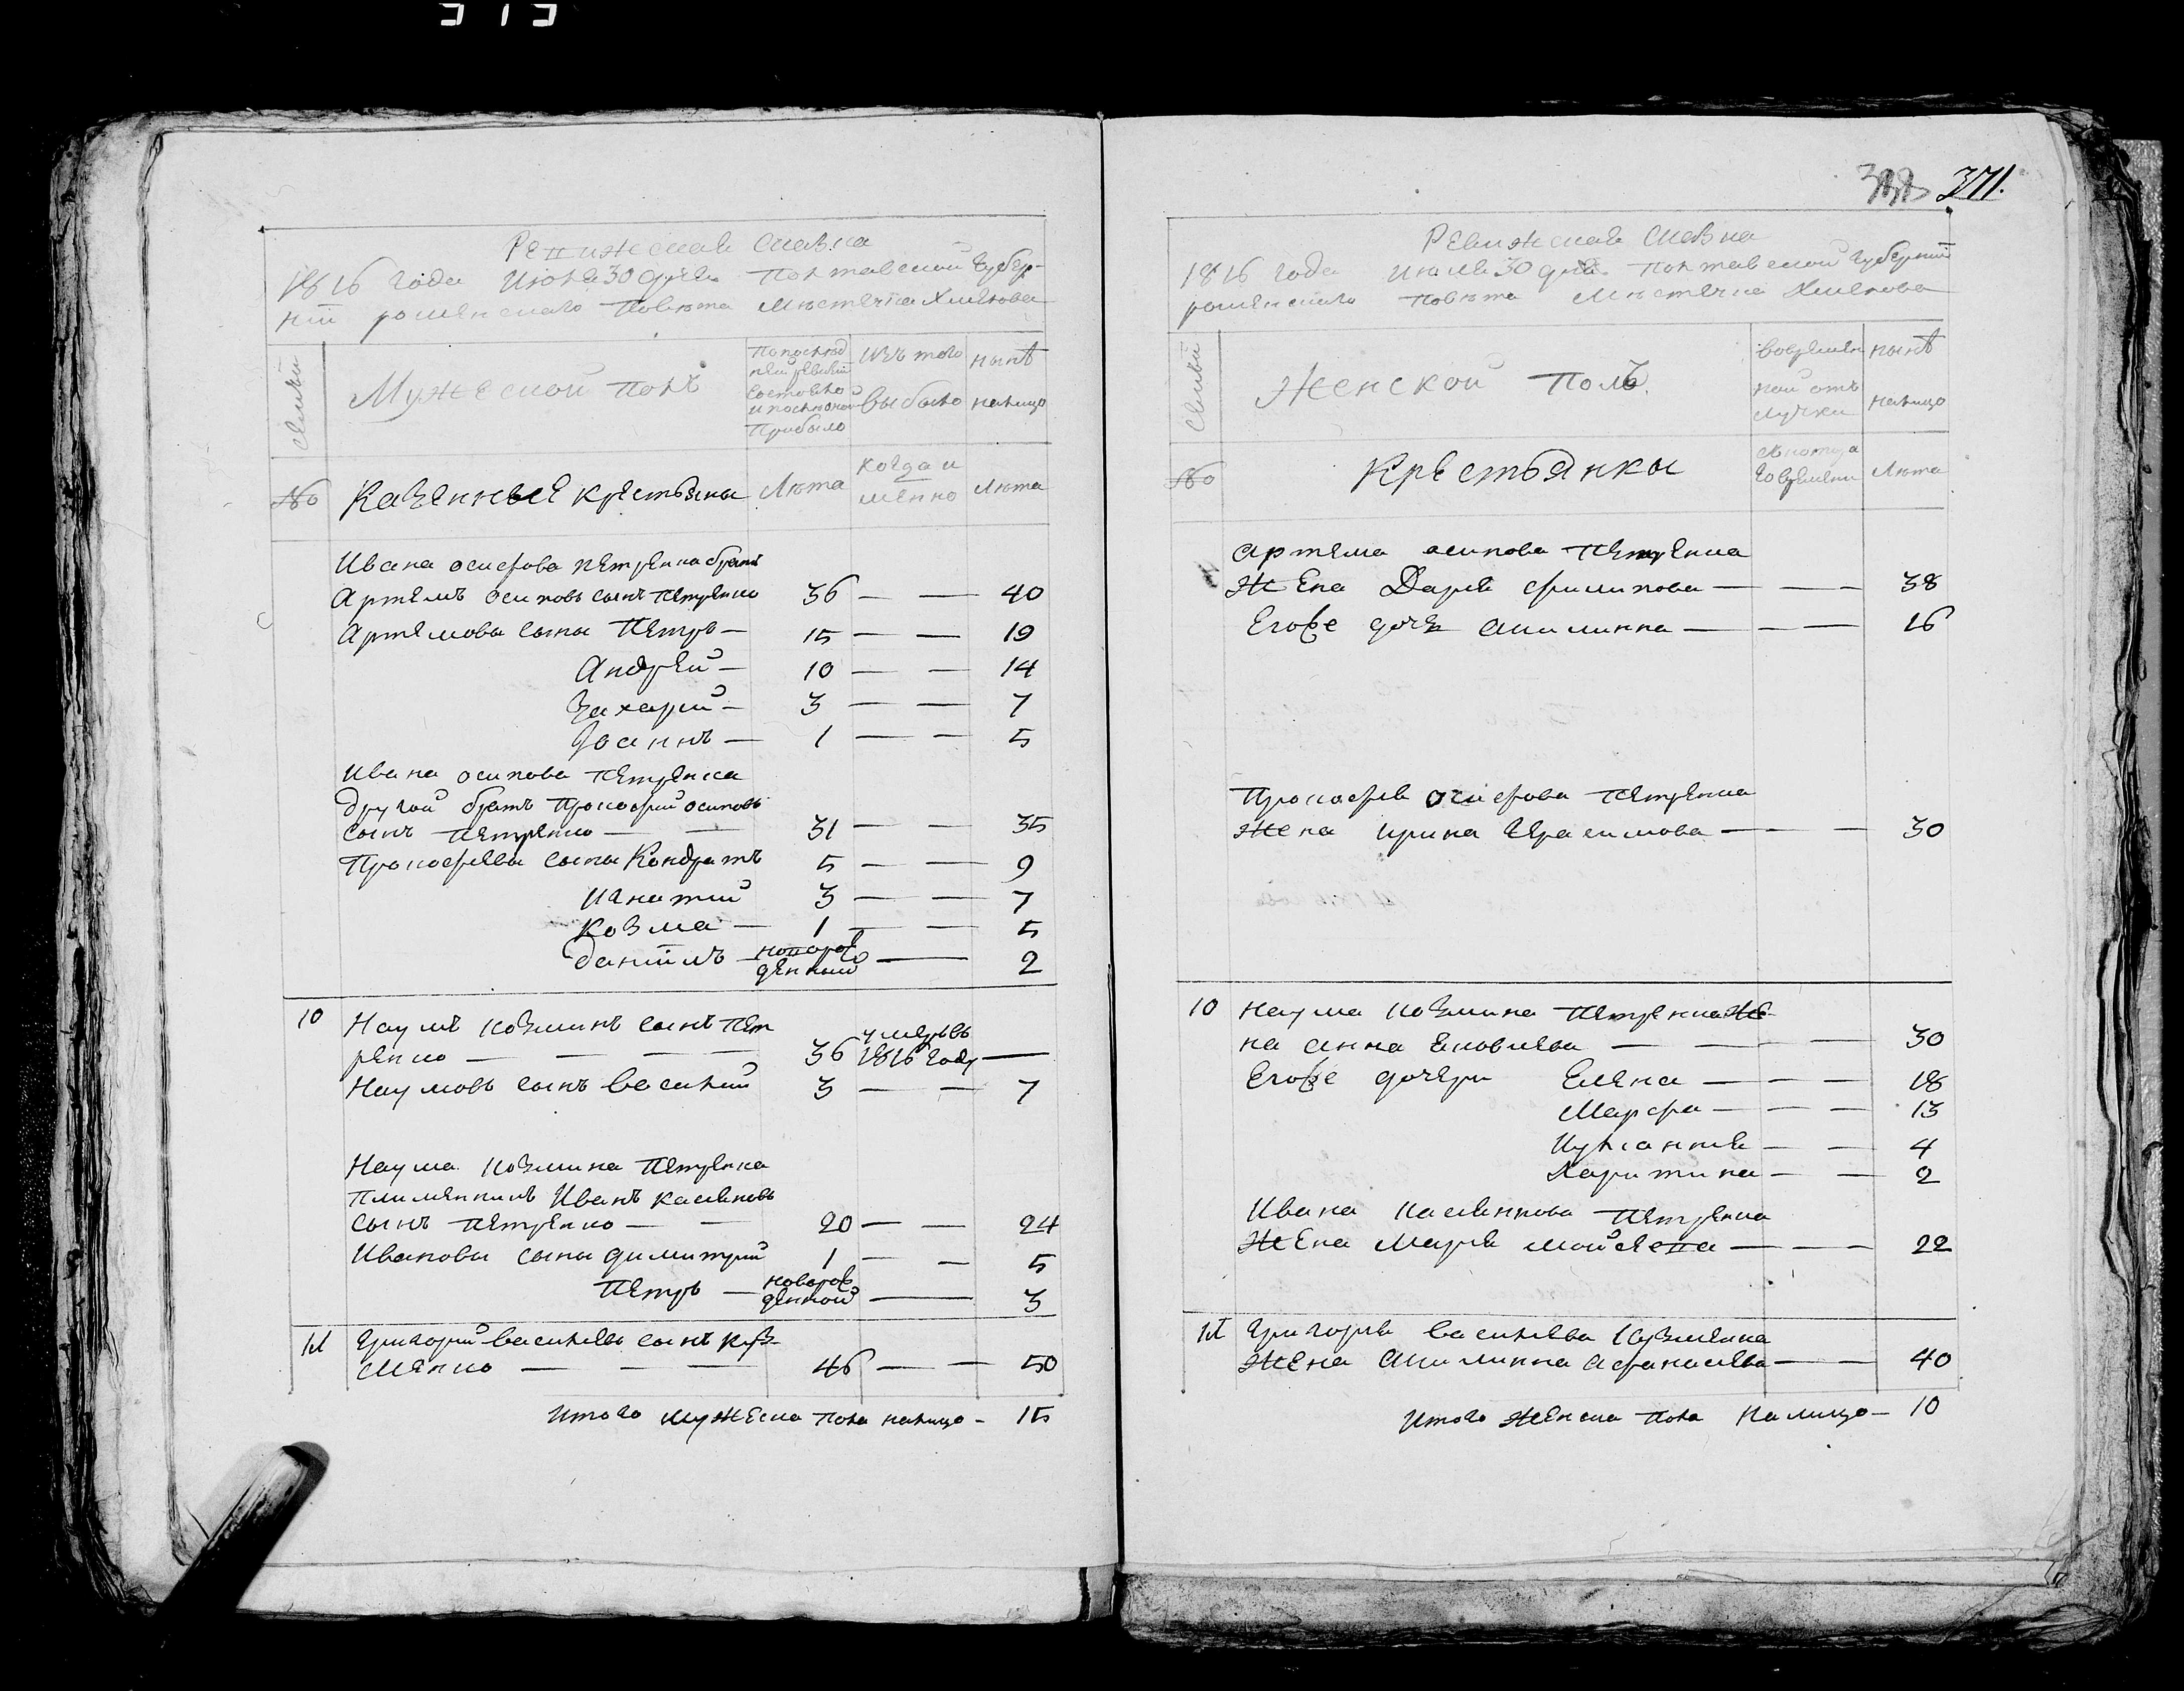 371.
Ревижская Сказка
1816 года Июня 30 дня Полтавской Губер-
нии роменскаго Повѣта Мѣстечка Хмелова
Семьи
Мужеской полъ
По послѣд
ней ревизіи
состояло
и послѣ оной
Прибыло
изъ того
выбыло
нынѣ
налицо
№
Казенные крестьяны
Лѣта
когда и
менно
Лѣта
Ивана осифова петренка братъ
Артемъ осиповъ сынъ петренко 36 — — 40
Артемовы сыны Петръ — 15 — — 19
Андрей — 10 — — 14
Захарий — 3 — — 7
Іоаннъ — 1 — — 5
Ивана осипова петренка
другой братъ Прокофий осиповъ
сынъ петренко — — 31 — — 35
Прокофиевы сыны Кондратъ 5 — — 9
Игнатий 3 — — 7
Козма — 1 — — 5
даніилъ — новорож
денный — 2
10 Наумъ козминъ сынъ пет
ренко — — — — 36 умеръ въ 1816 году —
Наумовъ сынъ василий 3 — — 7
Наума козмина петренка
племенникъ Иванъ касяновъ
сынъ петренко — — 20 — — 24
Ивановы сыны димитрий 1 — — 5
Петръ — новорож
денной — 3
11 Григорий васильевъ сынъ куз-
менко — — — 46 — — 50
Итого мужеска пола налицо — 15
Ревижская Сказка
1816 года Июня 30 дня Полтавской губерніи
роменскаго повѣта Мѣстечка Хмелова
Семьи
Женской полъ.
во времен
ной от
лучки
нынѣ
налицо
№
Крестьянки
съ котора
го времени
Лѣта
Артема осипова петренка
жена Дарья филипова — — — 38
Его же дочь акилинна — — — 16
Прокофья осифова петренка
жена ирина Герасимова — — — 30
10 Наума козмина петренка же-
на анна яковлева — — — — 30
Его же дочери Елена — — — 18
Марфа — — — 13
Иулианния — — 4
Харитина — — 2
Ивана касянкова петренка
жена Марья мойсеева — — — 22
11 Григорья васильева кузменка
жена акилинна афанасиева — — 40
Итого женска пола налицо — 10